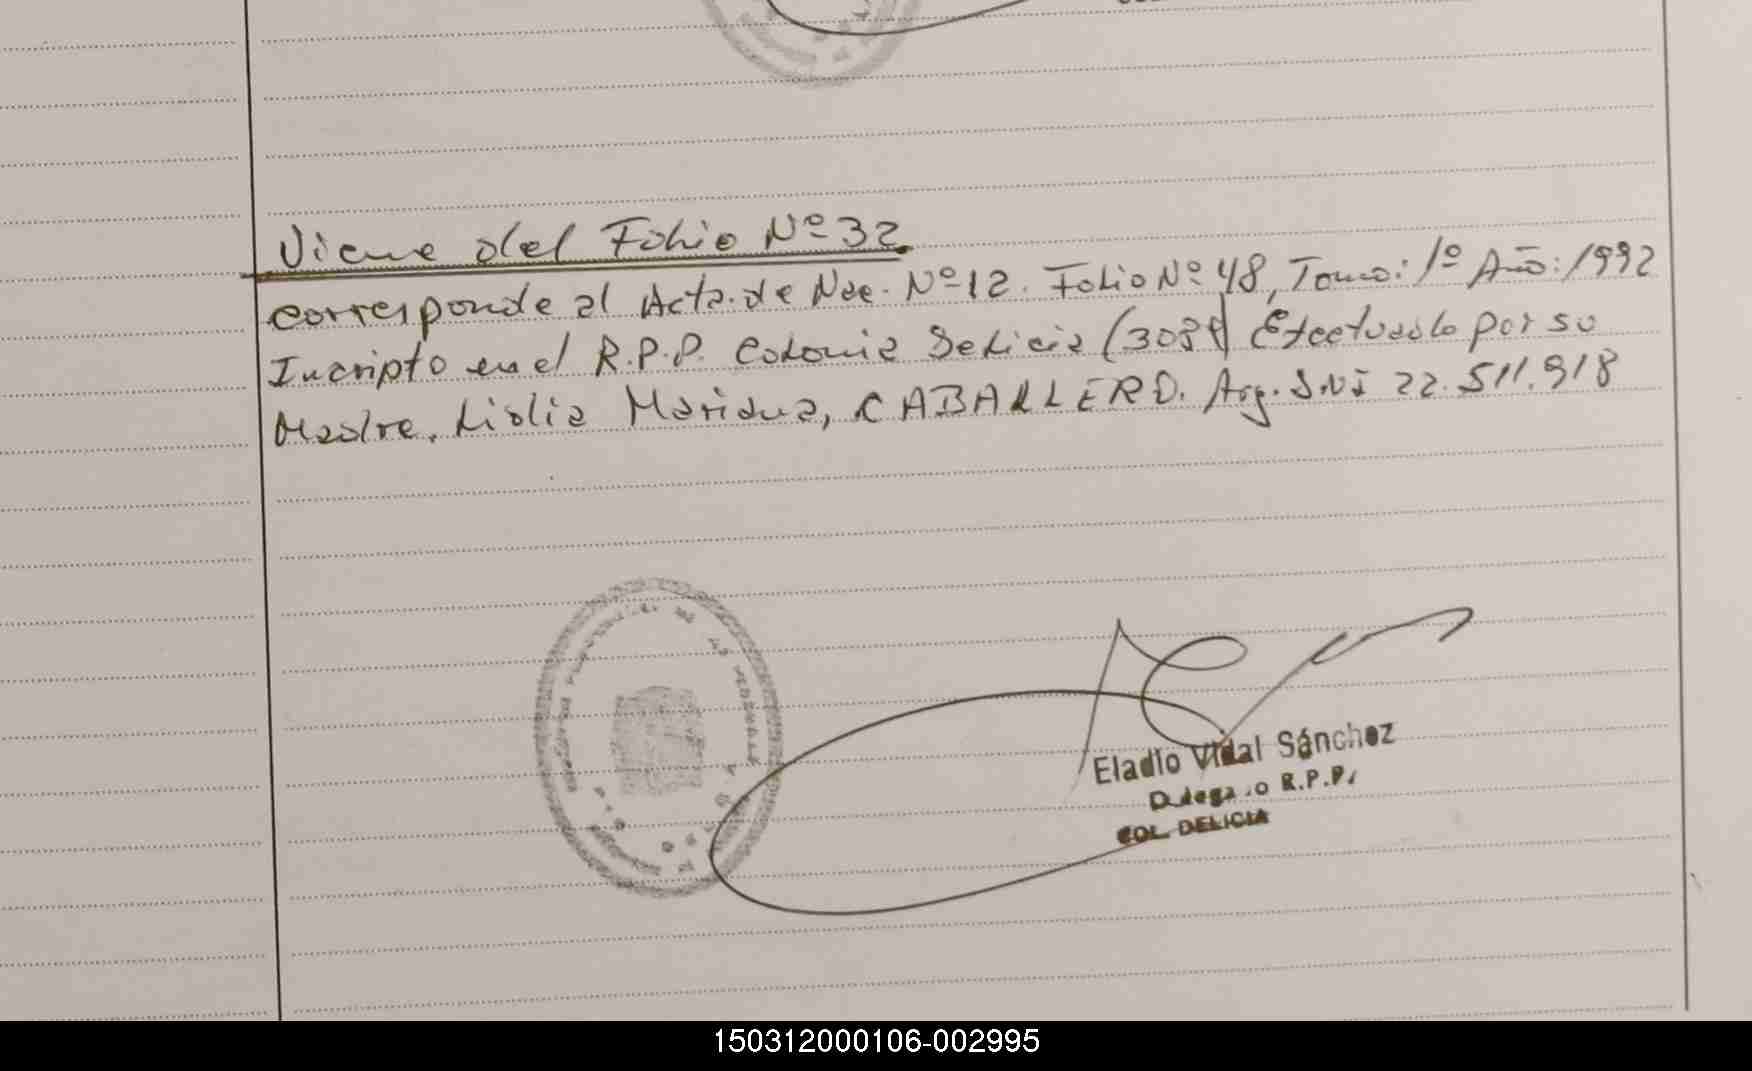 Viene del Folio Nº 32
Corresponde al Acta de Nac. Nº 12. Folio Nº 48, Tomo: 1º Año: 1992
Incripto en el R.P.P. Colonia Delicia Efectuado por su
Madre. Lidia Mariana, CABALLERO. Arg. DNI 22.511.918
Eladio Vidal Sánchez
R.P.P.
COL. DELICIA
150312000106-002995